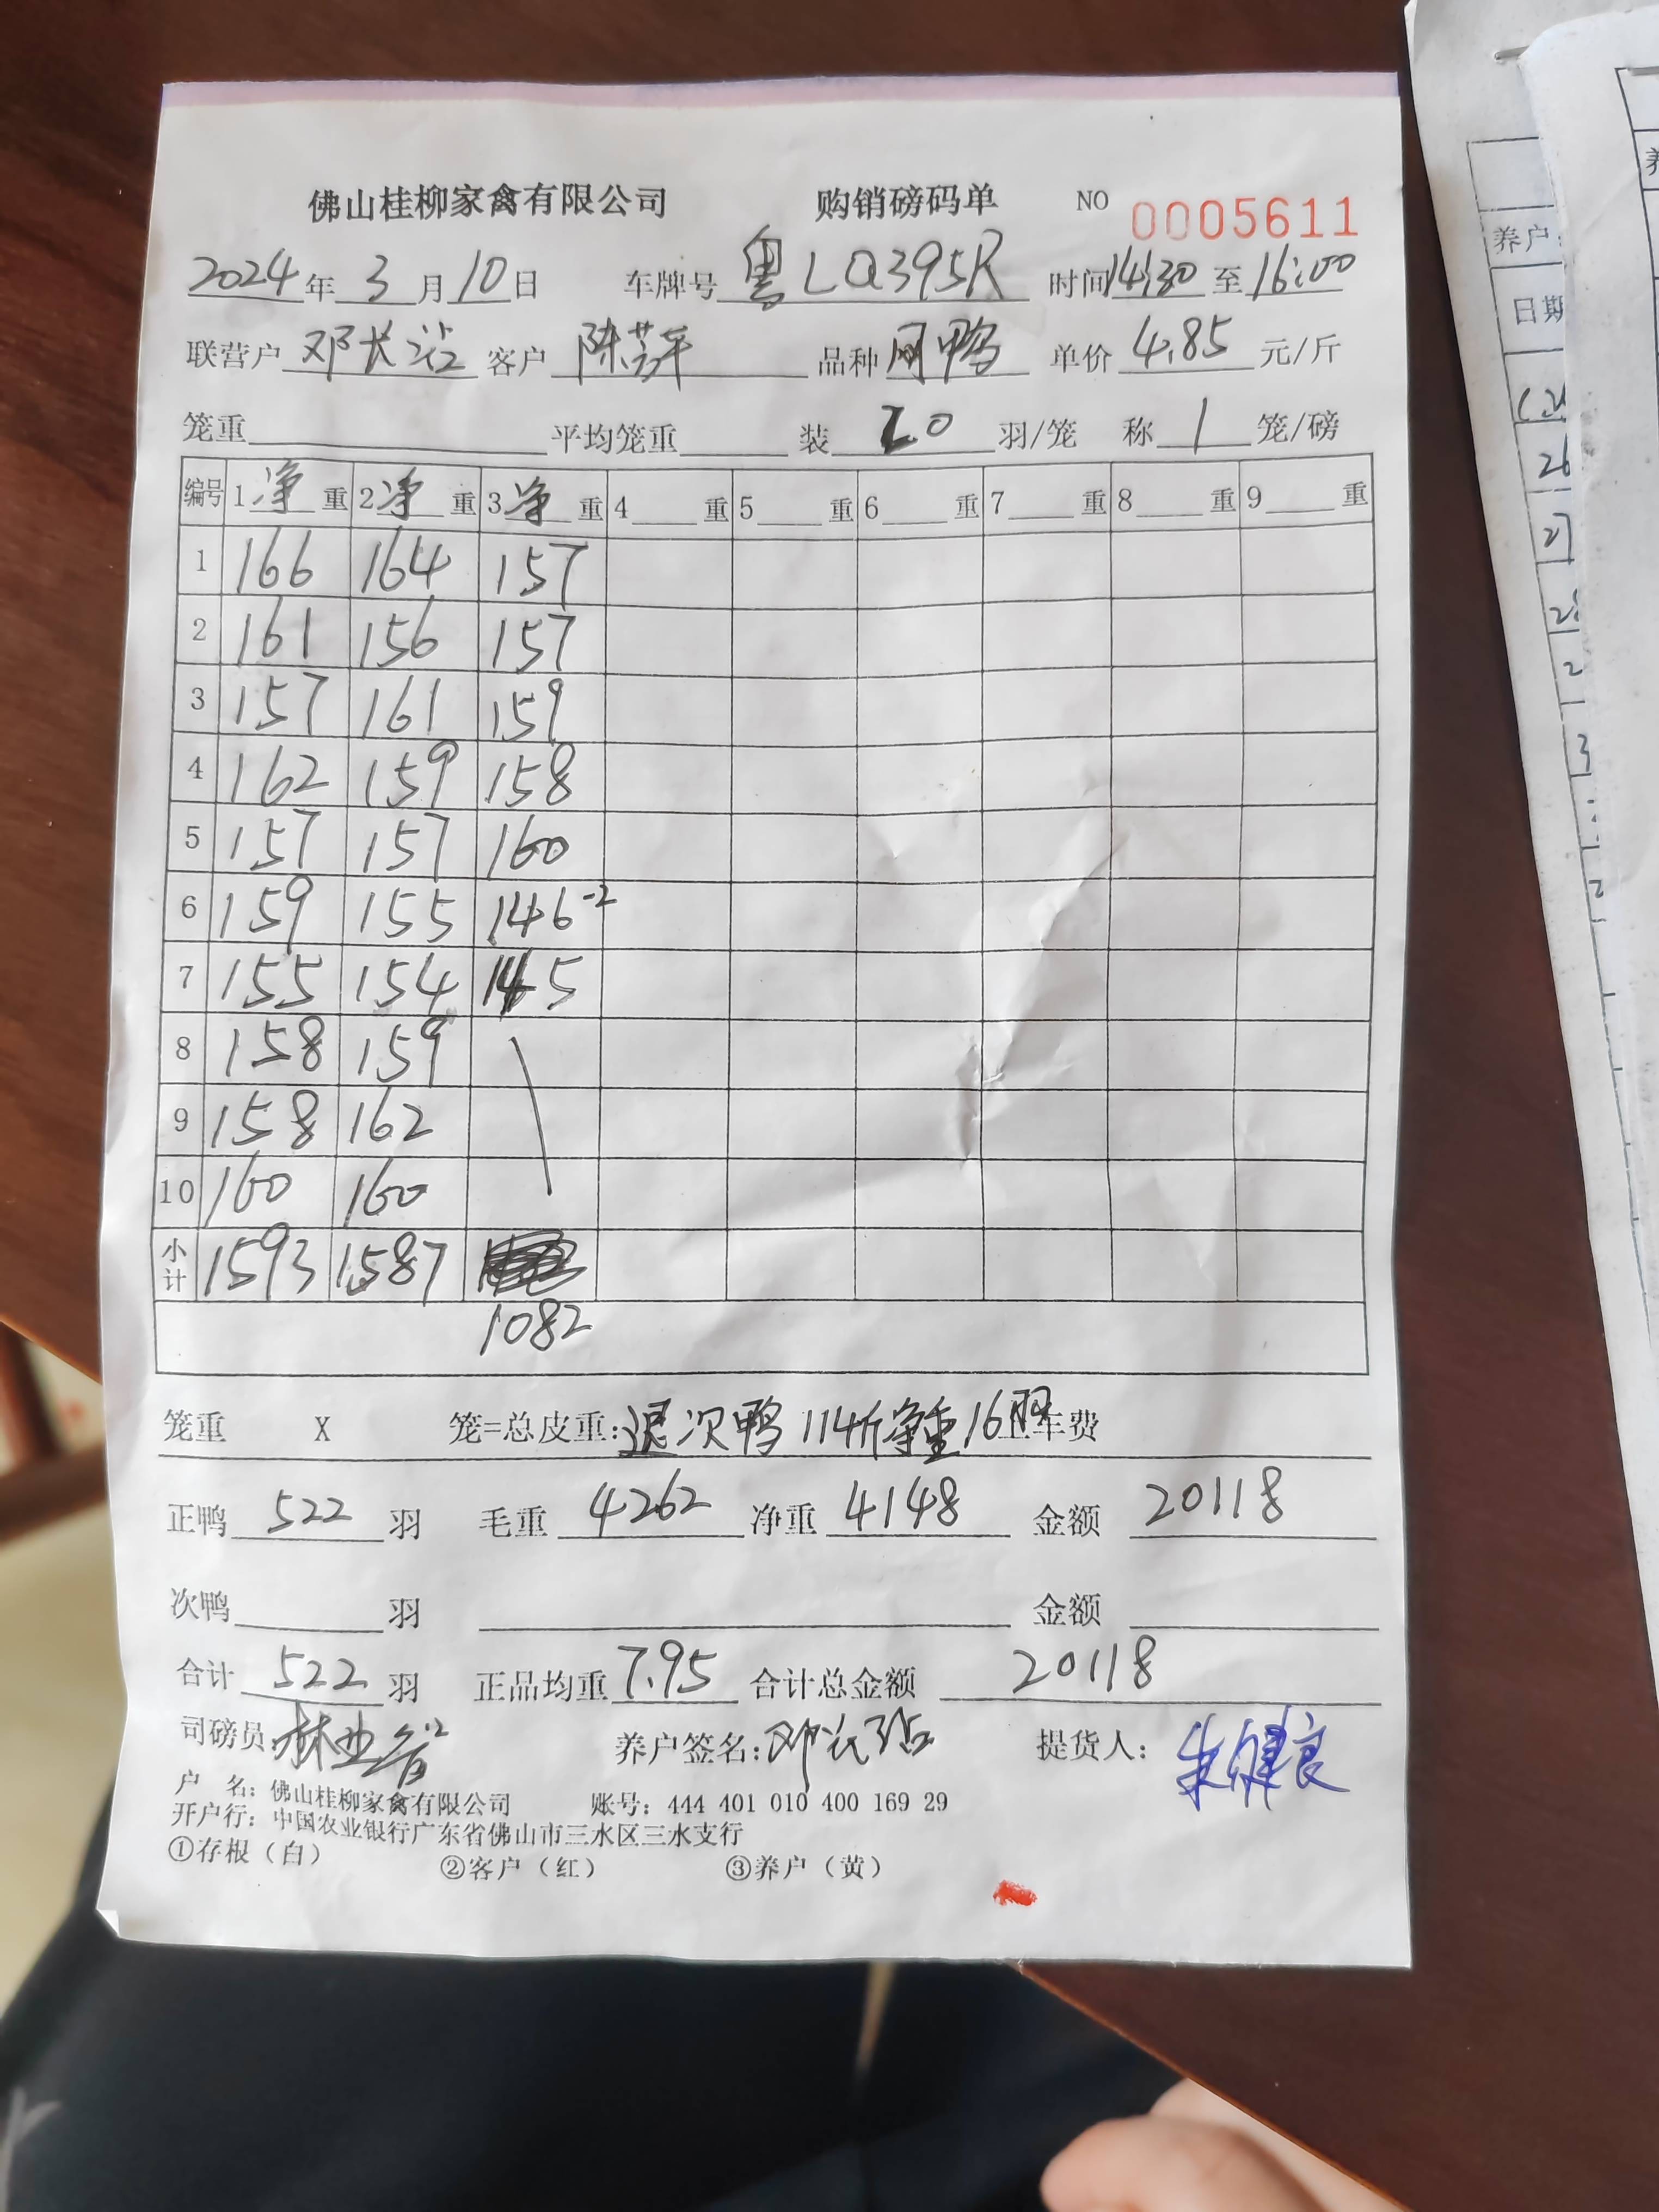 佛山桂柳家禽有限公司 购销磅码单 NO 0005611
2024年3月10日 车牌号 粤LQ395R 时间14:30至16:00
联营户 邓长沾 客户 陈萍 品种 网鸭 单价 4.85 元/斤
笼重 平均笼重 装 20 羽/笼 称 1 笼/磅
编号 1净重 2净重 3净重 4重 5重 6重 7重 8重 9重
1 166 164 157
2 161 156 157
3 157 161 159
4 162 159 158
5 157 157 160
6 159 155 146-2
7 155 154 145
8 158 159
9 158 162
10 160 160
小计 1593 1587
1082
笼重 X 笼=总皮重: 退次鸭114斤净重16羽 车费
正鸭 522 羽 毛重 4262 净重 4148 金额 20118
次鸭 羽 金额
合计 522 羽 正品均重 7.95 合计总金额 20118
司磅员: 林业 养户签名: 邓长沾 提货人: 朱健良
户 名: 佛山桂柳家禽有限公司 账号: 444 401 010 400 169 29
开户行: 中国农业银行广东省佛山市三水区三水支行
①存根（白） ②客户（红） ③养户（黄）
养户:
日期
26
27
2
3
2
养